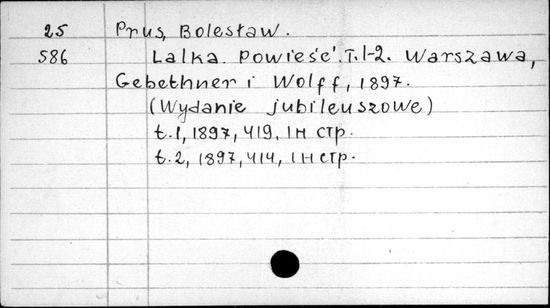 25 Prus, Bolesław.
586 Lalka. Powieść. T.1-2. Warszawa,
Gebethner i Wolff, 1897.
(Wydanie jubileuszowe)
t.1, 1897, 419, 1н стр.
t.2, 1897, 414, 1н стр.